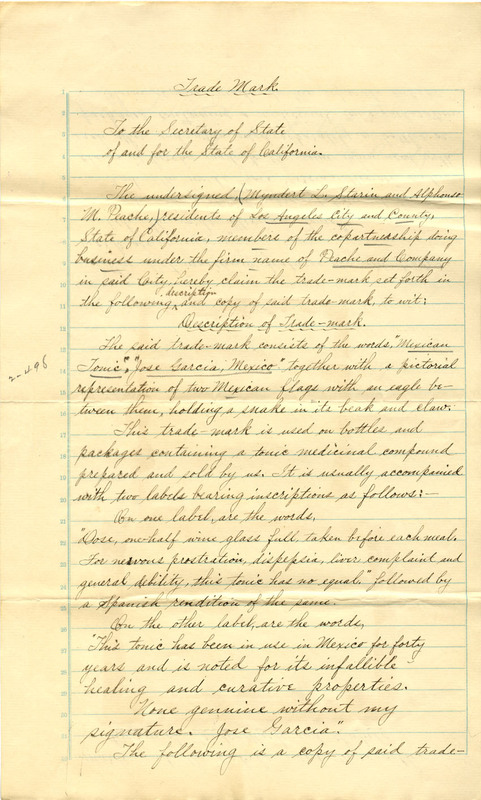 Trade Mark.
To the Secretary of State
of and for the State of California.
The undersigned, (Myndert Lu Starin and Alphonso
M. Peache,) residents of Los Angeles City and County,
State of California, members of the copartnership doing
business under the firm name of Peache and Company
in said City, hereby claim the trade-mark set forth in
the following description and copy of said trade mark, to wit:
Description of Trade-mark.
The said trade-mark consists of the words, "Mexican
Tonic", "Jose Garcia, Mexico" together with a pictorial
representation of two Mexican flags with an eagle be-
tween them, holding a snake in its beak and claw.
This trade-mark is used on bottles and
packages containing a tonic medicinal compound
prepared and sold by us. It is usually accompanied
with two labels bearing inscriptions as follows:—
On one label, are the words,
"Dose, one-half wine glass full, taken before each meal.
For nervous prostration, dispepsia, liver complaint and
general debility, this tonic has no equal." followed by
a Spanish rendition of the same.
On the other label, are the words,
"This tonic has been in use in Mexico for forty
years and is noted for its infallible
healing and curative properties.
None genuine without my
signature. Jose Garcia".
The following is a copy of said trade-
2-498